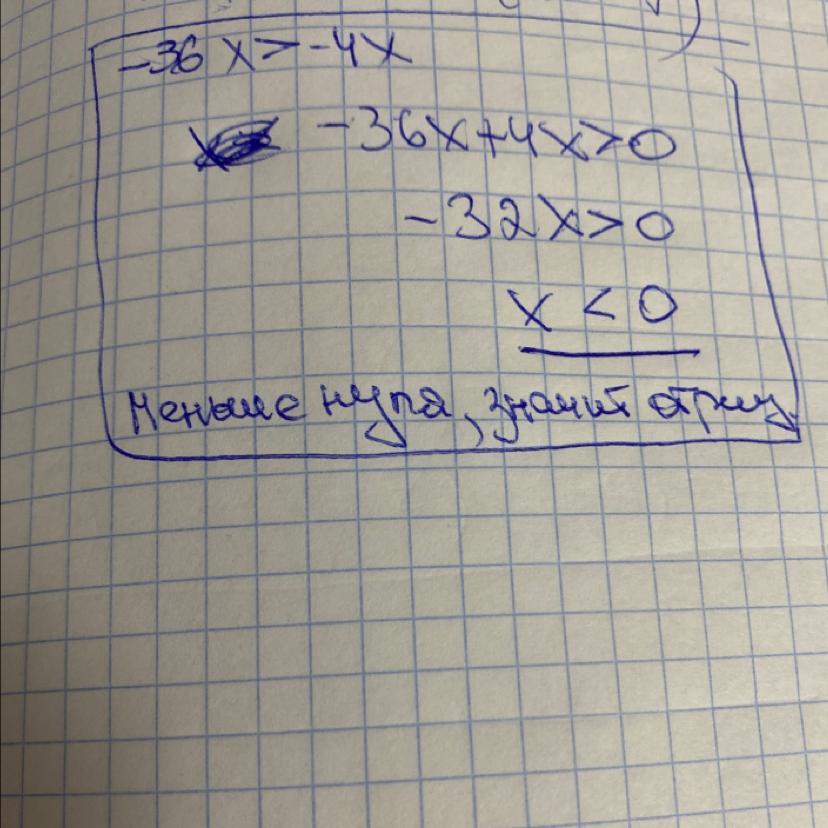 -36x>-4x
-36x+4x>0
-32x>0
x<0
Меньше нуля, значит отриц.